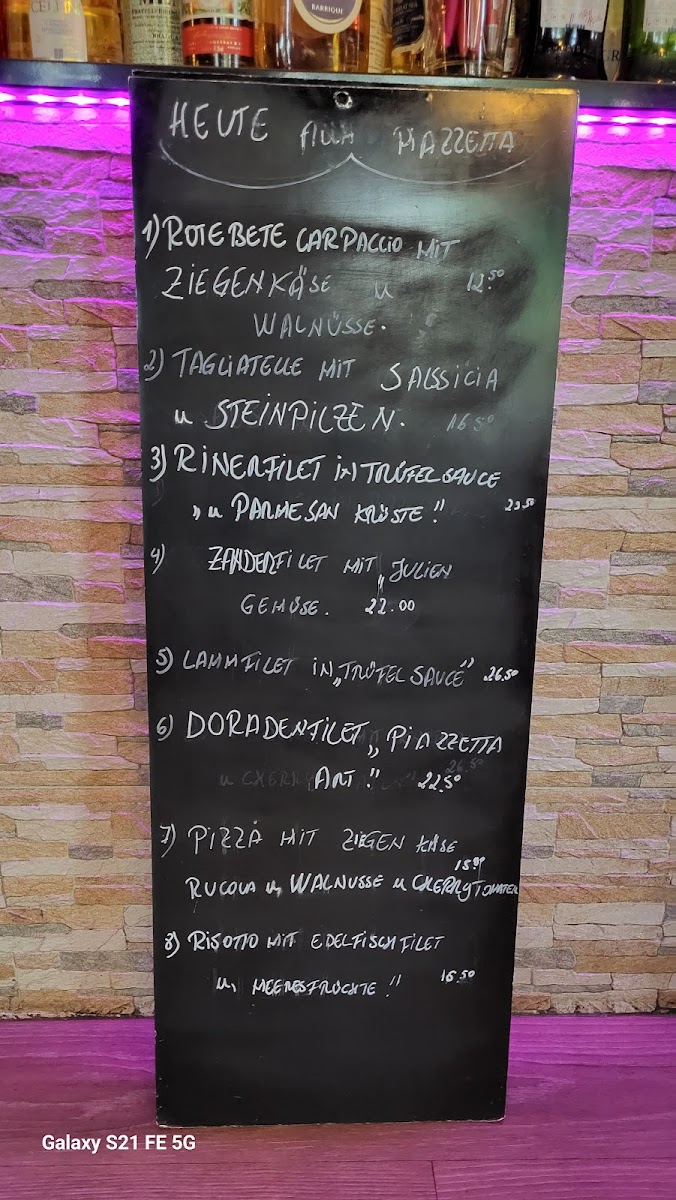 BARRIQUE
HEUTE ALLA PIAZZETTA
1) ROTEBETE CARPACCIO MIT
ZIEGENKÄSE u 12.50
WALNÜSSE.
2) TAGLIATELLE MIT SALSSICIA
u STEINPILZEN. 16.50
3) RINERFILET IN TRÜFELSAUCE
„u PARMESAN KRUSTE!! 23.50
4) ZANDERFILET MIT „JULIEN
GEMÜSE. 22.00
5) LAMMFILET IN „TRÜFEL SAUCE" 26.50
6) DORADENFILET „PIAZZETTA
ART!" 22.50
7) PIZZA MIT ZIEGEN KÄSE
RUCOLA u, WALNUSSE u CHERRYTOMATEN
8) RISOTTO MIT EDELFISCHFILET
u, MEERESFRÜCHTE!! 16.50
Galaxy S21 FE 5G